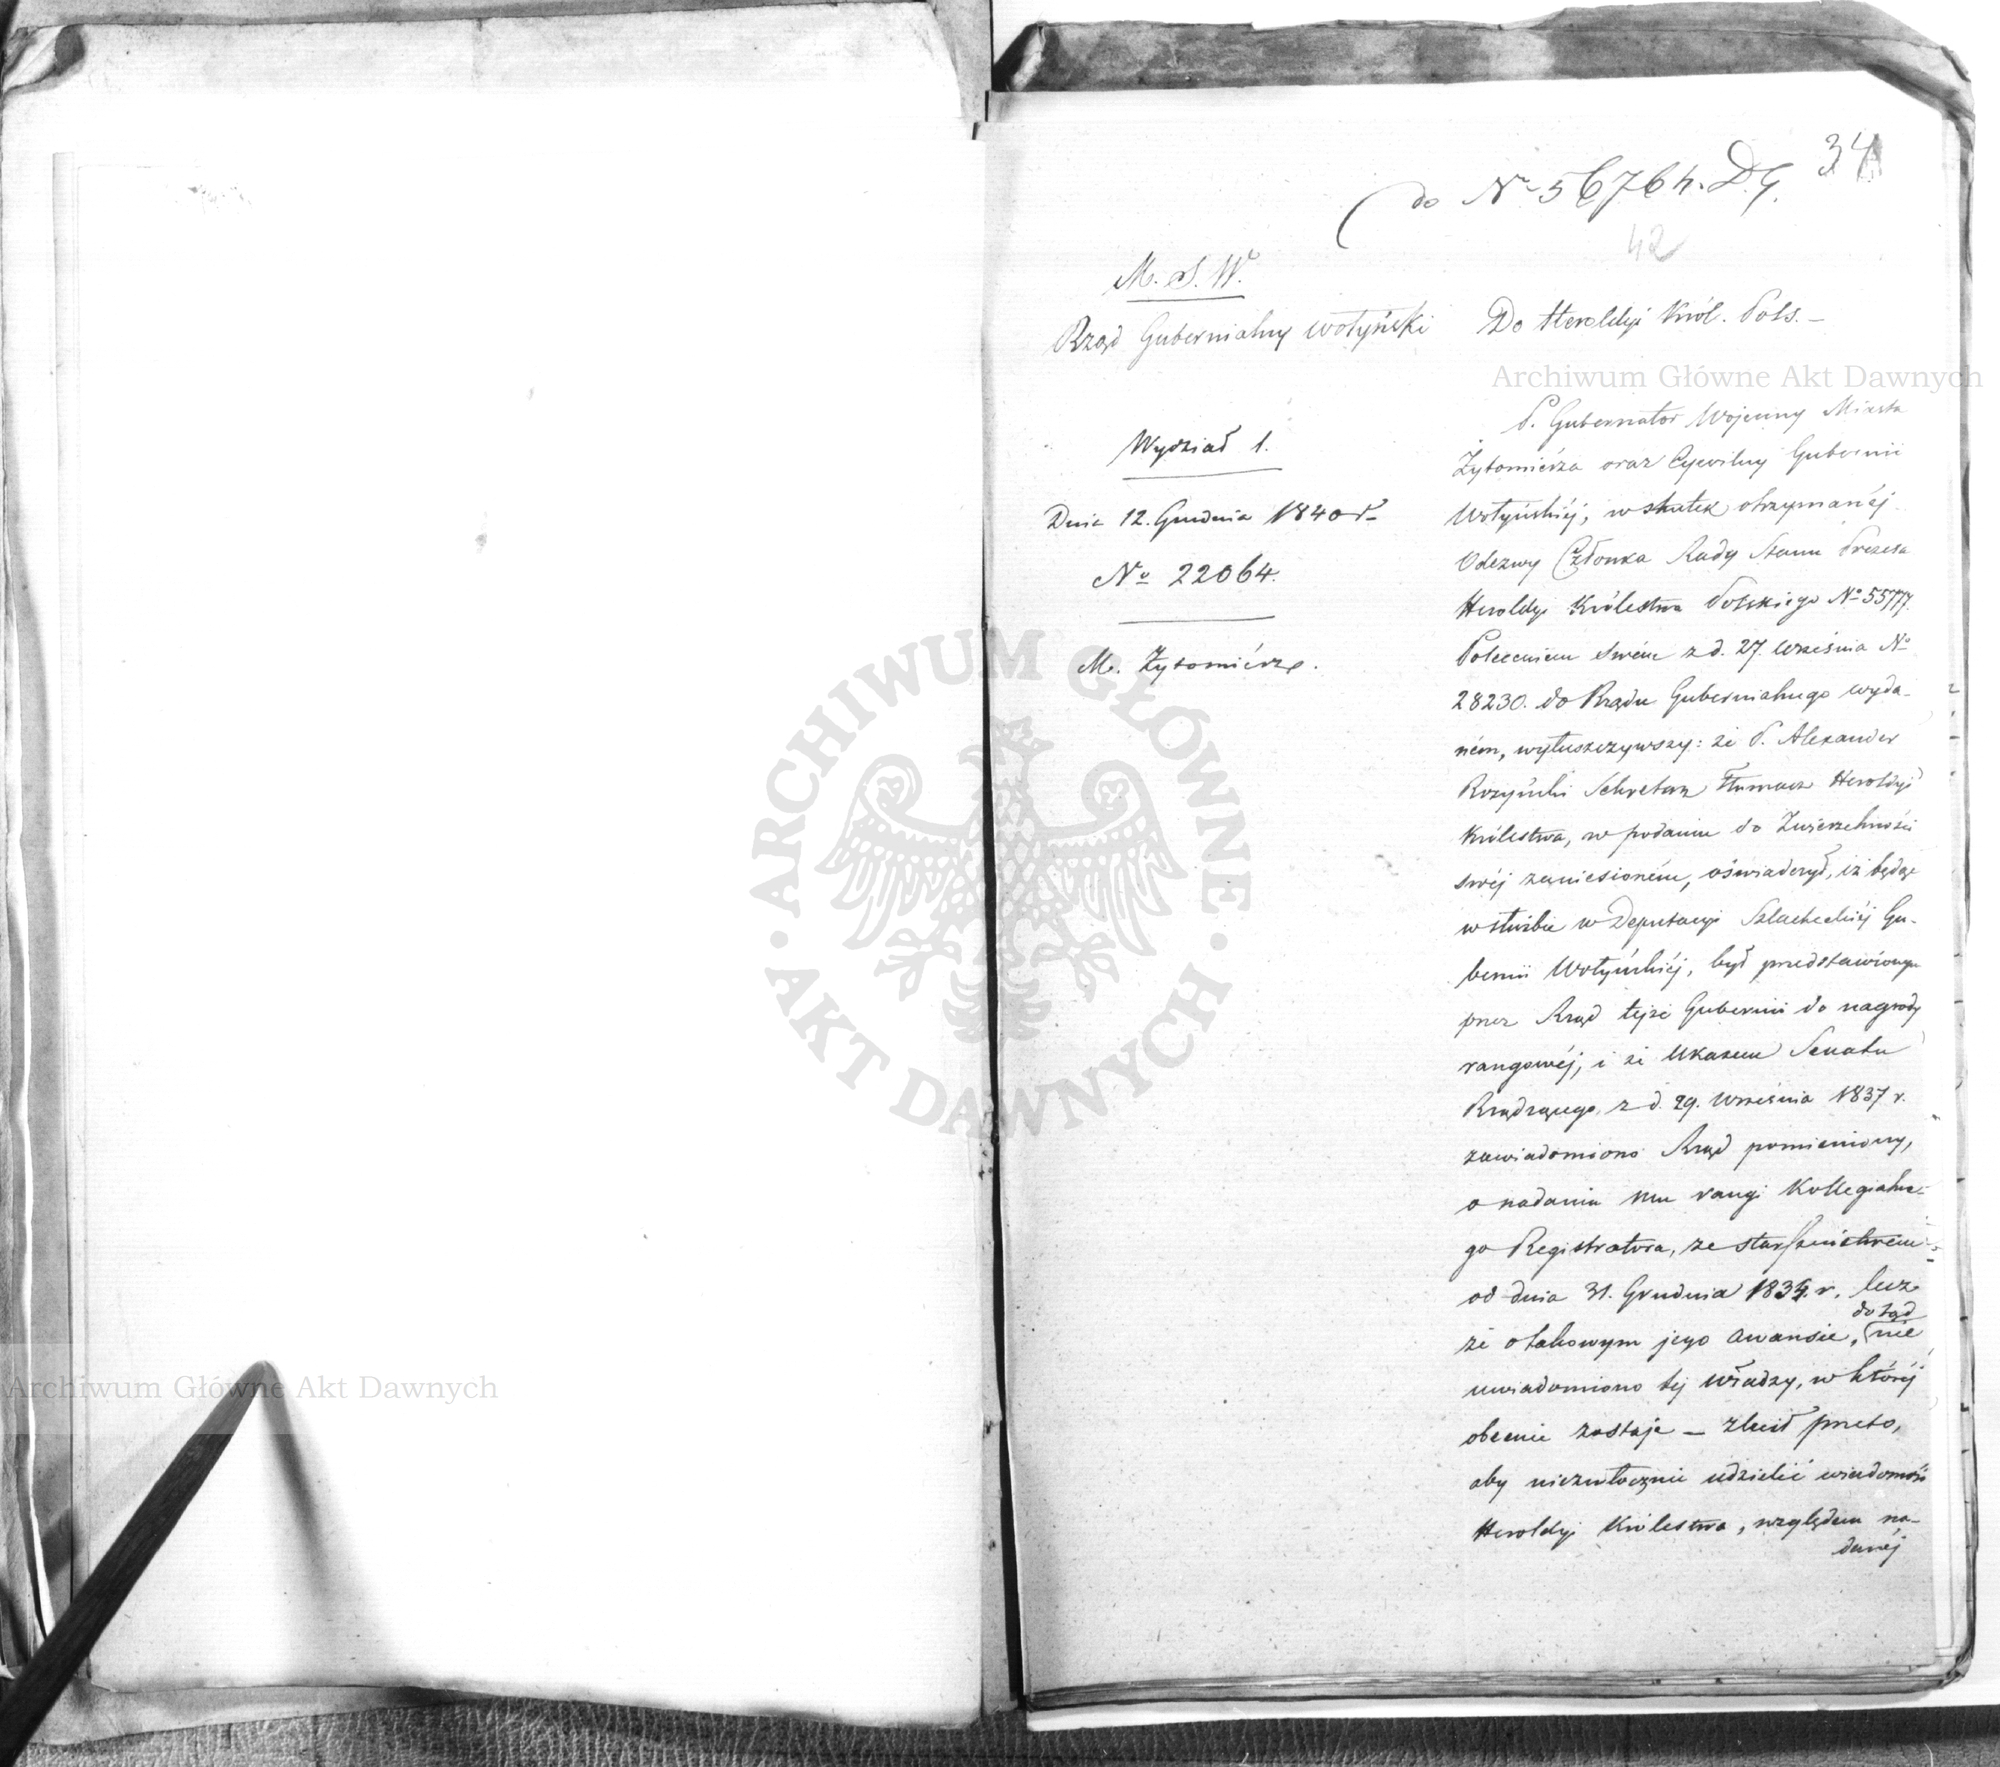 34
do No 56764. D.G.
42
M. S. W.
Rząd Gubernialny Wołyński
Wydział 1.
Dnia 12. Grudnia 1840 r.
No 22064.
M. Żytomiérz.
Do Heroldyi Król. Pols. —
P. Gubernator Wojenny Miasta
Żytomiérza oraz Cywilny Gubernii
Wołyńskiéj, w skutek otrzymanéj
Odezwy Członka Rady Stanu Prezesa
Heroldyi Królestwa Polskiego No 55777.
Poleceniem swém z d. 27. Września No
28230. do Rządu Gubernialnego wyda-
ném, wyłuszczywszy: że P. Alexander
Rozyński Sekretarz Tłumacz Heroldyi
Królestwa, w podaniu do Zwierzchności
swéj zaniesioném, oświadczył, iż będąc
w służbie w Deputacyi Szlacheckiéj Gu-
bernii Wołyńskiéj, był przedstawionym
przez Rząd tejże Gubernii do nagrody
rangowéj, i że Ukazem Senatu
Rządzącego, z d. 29. Września 1837 r.
zawiadomiono Rząd pomieniony,
o nadaniu mu rangi Kollegialne-
go Registratora, ze starszeństwem
od dnia 31. Grudnia 1834. r. lecz
że o takowym jego awansie, dotąd nie
uwiadomiono téj Władzy, w któréj
obecnie zostaje — zlecił przeto,
aby niezwłocznie udzielić wiadomość
Heroldyi Królestwa, względem na-
danéj
Archiwum Główne Akt Dawnych
Archiwum Główne Akt Dawnych
ARCHIWUM GŁÓWNE · AKT DAWNYCH ·